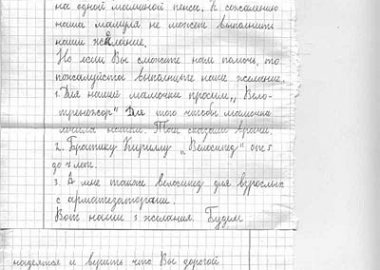 на одной маминой пенси. К сожалению
наша мамуля не может выполнить
наши желание.
Но если Вы сможете нам помочь, то
пожалуйста выполните наше желание.
1. Для нашей мамочки просим „Вело-
треножор" Для того чтобы мамочка
нагами. Так сказали врачи.
2. Братику Кирилу „Велосипед" от 5
до 7 лет.
3. А мне также велосипед для взрослых
с арматизаторами.
Вот наши 3 желания. Будем
надеятся и верить что Вы дорогой